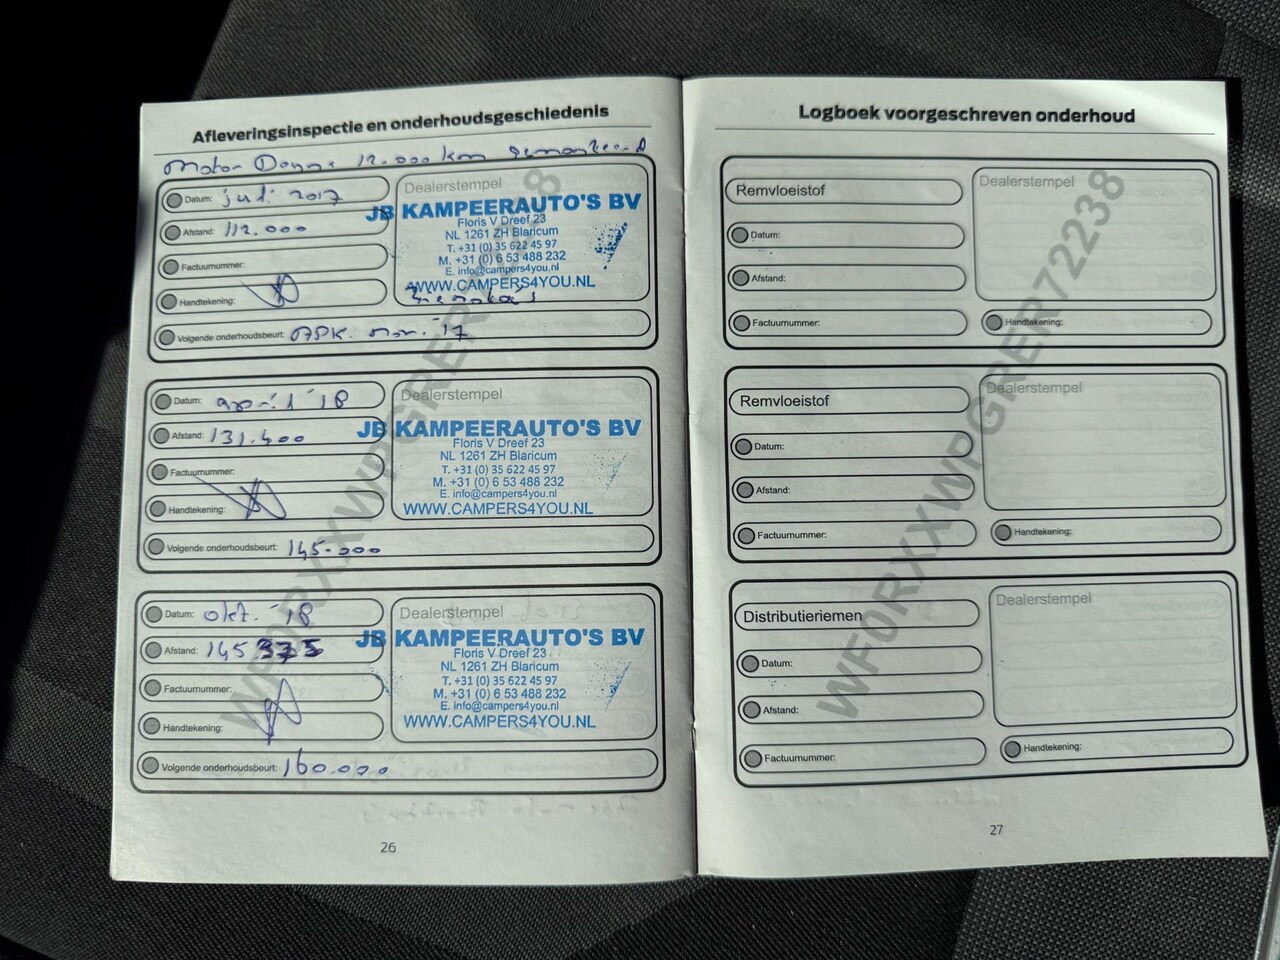 Afleveringsinspectie en onderhoudsgeschiedenis
Motor 12.000 km gemonteerd
Datum: juli 2017
Afstand: 112.000
Factuurnummer:
Handtekening:
Volgende onderhoudsbeurt: APK. nov. '17
Dealerstempel
JB KAMPEERAUTO'S BV
Floris V Dreef 23
NL 1261 ZH Blaricum
T. +31 (0) 35 622 45 97
M. +31 (0) 6 53 488 232
E. info@campers4you.nl
WWW.CAMPERS4YOU.NL
Datum: april '18
Afstand: 131.400
Factuurnummer:
Handtekening:
Volgende onderhoudsbeurt: 145.000
Dealerstempel
JB KAMPEERAUTO'S BV
Floris V Dreef 23
NL 1261 ZH Blaricum
T. +31 (0) 35 622 45 97
M. +31 (0) 6 53 488 232
E. info@campers4you.nl
WWW.CAMPERS4YOU.NL
Datum: okt. '18
Afstand: 145 335
Factuurnummer:
Handtekening:
Volgende onderhoudsbeurt: 160.000
Dealerstempel
JB KAMPEERAUTO'S BV
Floris V Dreef 23
NL 1261 ZH Blaricum
T. +31 (0) 35 622 45 97
M. +31 (0) 6 53 488 232
E. info@campers4you.nl
WWW.CAMPERS4YOU.NL
26
Logboek voorgeschreven onderhoud
Remvloeistof
Datum:
Afstand:
Factuurnummer:
Dealerstempel
Handtekening:
Remvloeistof
Datum:
Afstand:
Factuurnummer:
Dealerstempel
Handtekening:
Distributieriemen
Datum:
Afstand:
Factuurnummer:
Dealerstempel
Handtekening:
WF0RXXWPGRER72238
27